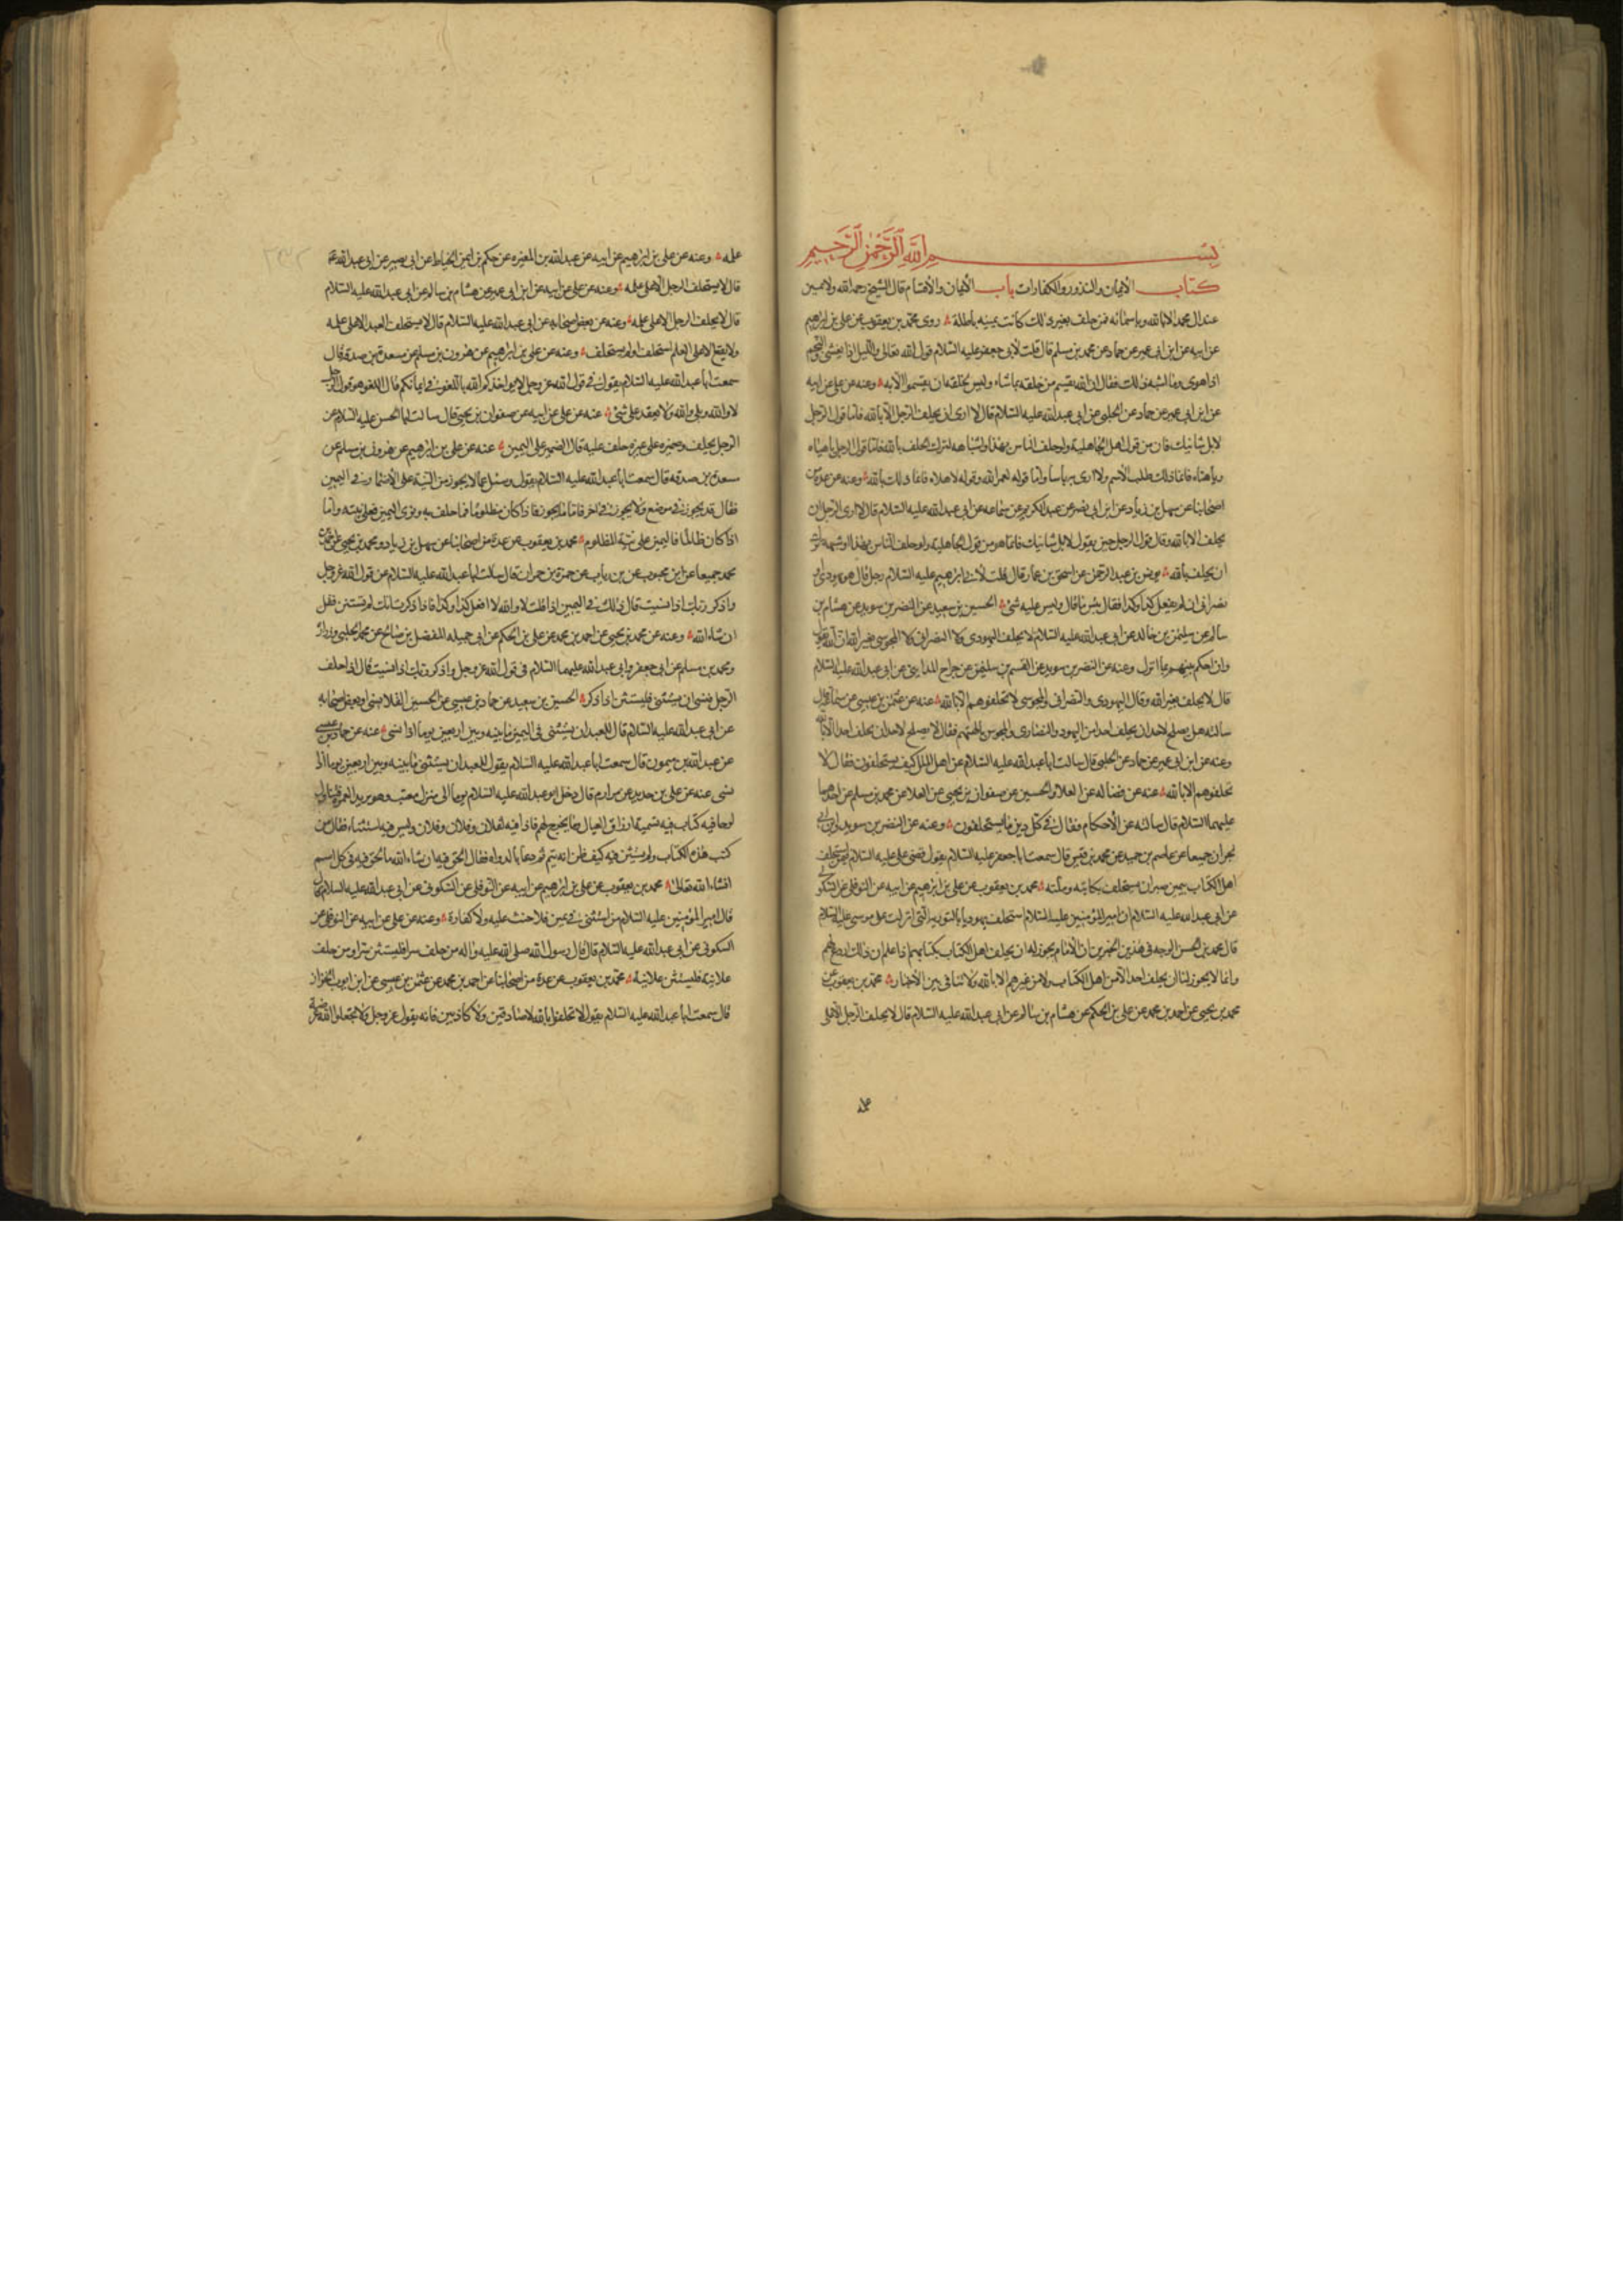 بسم الله الرحمن الرحيم
كتاب الأيمان والنذور والكفارات باب الأيمان والأقسام قال الشيخ رحمه الله ولا يمين
عند آل محمد الا بالله وباسمائه فمن حلف بغير ذلك كانت يمينه باطلة روى محمد بن يعقوب عن علي بن ابراهيم
عن ابيه عن ابن ابي عمير عن حماد عن محمد بن مسلم قال قلت لأبي جعفر عليه السلام قول الله تعالى والليل اذا يغشى والنجم
اذا هوى وما اشبه ذلك فقال ان الله يقسم من خلقه بما شاء وليس لخلقه ان يقسموا الا به وعنه عن علي عن ابيه
عن ابن ابي عمير عن حماد عن الحلبي عن ابي عبد الله عليه السلام قال لا ارى ان يحلف الرجل الا بالله فاما قول الرجل
لابل شانيك فان من قول اهل الجاهلية ولو حلف الناس بهذا واشباهه لترك الحلف بالله فاما قول الرجل يا هياه
ويا هناه فانما ذلك طلب الأسم ولا ارى به بأسا واما قوله لعمر الله وقوله لاهلاه فانما ذلك بالله وعنه عن عدة من
اصحابنا عن سهل بن زياد عن ابن ابي نصر عن عبد الكريم عن سماعه عن ابي عبد الله عليه السلام قال لا ارى للرجل ان
يحلف الا بالله وقال قول الرجل حين يقول لابل شانيك فانما هو من قول الجاهلية ولو حلف الناس بهذا وشبهه ترك
ان يحلف بالله يونس بن عبد الرحمن عن اسحق بن عمار قال قلت لأبي ابراهيم عليه السلام رجل قال هو يهودي او
نصراني ان لم يفعل كذا وكذا فقال بئس ما قال وليس عليه شئ الحسين بن سعيد عن النضر بن سويد عن هشام بن
سالم عن سليمن بن خالد عن ابي عبد الله عليه السلام لا يحلف اليهودي ولا النصراني ولا المجوسي بغير الله ان الله يقول
وان احكم بينهم بما انزل وعنه عن النضر بن سويد عن القسم بن سليمن عن جراح المدايني عن ابي عبد الله عليه السلام
قال لا يحلف بغير الله وقال اليهودي والنصراني والمجوسي لا تحلفوهم الا بالله عنه عن عثمن بن عيسى عن سماعة قال
سالته هل يصلح لاحد ان يحلف احدا من اليهود والنصارى والمجوس بالهتهم فقال لا يصلح لاحد ان يحلف احدا الا بالله
وعنه عن ابن ابي عمير عن حماد عن الحلبي قال سالت ابا عبد الله عليه السلام عن اهل الملل كيف يستحلفون فقال لا
تحلفوهم الا بالله عنه عن فضاله عن العلا والحسين عن صفوان بن يحيى عن العلا عن محمد بن مسلم عن احدهما
عليهما السلام قال سالته عن الأحكام فقال في كل دين ما يستحلفون وعنه عن النضر بن سويد وابن ابي
نجران جميعا عن عاصم بن حميد عن محمد بن قيس قال سمعت ابا جعفر عليه السلام يقول قضى علي عليه السلام فيمن استحلف
اهل الكتاب بيمين صبر ان يستحلف بكتابه وملته محمد بن يعقوب عن علي بن ابراهيم عن ابيه عن النوفلي عن السكوني
عن ابي عبد الله عليه السلام ان امير المؤمنين عليه السلام استحلف يهوديا بالتورية التي انزلت على موسى عليه السلام
قال محمد بن الحسن الوجه في هذين الخبرين ان الأمام يجوز له ان يحلف اهل الكتاب بكتابهم اذا علم ان ذلك اردع لهم
وانما لا يجوز لنا ان يحلف احدا لا من اهل الكتاب ولا من غيرهم الا بالله ولا تنافي بين الأخبار محمد بن يعقوب عن
محمد بن يحيى عن احمد بن محمد عن علي بن الحكم عن هشام بن سالم عن ابي عبد الله عليه السلام قال لا يحلف الرجل الا على
علمه وعنه عن علي بن ابراهيم عن ابيه عن عبد الله بن المغيره عن حكم بن ايمن الحناط عن ابي بصير عن ابي عبد الله
قال لا يستحلف الرجل الا على علمه وعنه عن علي عن ابيه عن ابن ابي عمير عن هشام بن سالم عن ابي عبد الله عليه السلام
قال لا يحلف الرجل الا على علمه وعنه عن بعض اصحابه عن ابي عبد الله عليه السلام قال لا يستحلف العبد الا على علمه
ولا يقع الا على العلم استحلف او لم يستحلف وعنه عن علي بن ابراهيم عن هرون بن مسلم عن مسعدة بن صدقة قال
سمعت ابا عبد الله عليه السلام يقول في قول الله عز وجل لا يواخذكم الله باللغو في ايمانكم قال اللغو هو قول الرجل
لا والله وبلى والله ولا يعقد على شئ عنه عن علي عن ابيه عن صفوان بن يحيى قال سالت ابا الحسن عليه السلام عن
الرجل يحلف وضميره على غير ما حلف عليه قال اليمين على الضمير عنه عن علي بن ابراهيم عن هرون بن مسلم عن
مسعدة بن صدقه قال سمعت ابا عبد الله عليه السلام يقول وسئل عما لا يجوز من النية على الأضمار في اليمين
فقال قد يجوز في موضع ولا يجوز في اخر فاما ما يجوز فاذا كان مظلوما فما حلف به ونوى اليمين فعلى نيته واما
اذا كان ظالما فاليمين على نية المظلوم محمد بن يعقوب عن عدة من اصحابنا عن سهل بن زياد ومحمد بن يحيى عن احمد بن
محمد جميعا عن ابن محبوب عن بن رياب عن حمزة بن حمران قال سالت ابا عبد الله عليه السلام عن قول الله عز وجل
واذكر ربك اذا نسيت قال ذلك في اليمين اذا قلت لا والله لا افعل كذا وكذا فاذا ذكرت انك لم تستثن فقل
ان شاء الله وعنه عن محمد بن يحيى عن احمد بن محمد عن علي بن الحكم عن ابي جميله المفضل بن صالح عن محمد الحلبي وزرارة
ومحمد بن مسلم عن ابي جعفر وابي عبد الله عليهما السلام في قول الله عز وجل واذكر ربك اذا نسيت قال اذا حلف
الرجل فنسي ان يستثني فليستثن اذا ذكر الحسين بن سعيد عن حماد بن عيسى عن الحسين القلانسي او بعض اصحابه
عن ابي عبد الله عليه السلام قال للعبد ان يستثني في اليمين ما بينه وبين اربعين يوما اذا نسى عنه عن حماد بن عيسى
عن عبد الله بن ميمون قال سمعت ابا عبد الله عليه السلام يقول للعبد ان يستثني ما بينه وبين اربعين يوما اذا
نسى عنه عن علي بن حديد عن مرازم قال دخل ابو عبد الله عليه السلام يوما الى منزل معتب وهو يريد العمرة فتناول
لوحا فيه كتاب فيه تسمية ارزاق العيال وما يخرج لهم فاذا فيه لفلان وفلان وفلان وليس فيه استثناء فقال من
كتب هذا الكتاب ولم يستثن فيه كيف ظن انه يتم ثم دعا بالدواة فقال الحق فيه ان شاء الله فالحق فيه في كل اسم
انشاء الله تعالى محمد بن يعقوب عن علي بن ابراهيم عن ابيه عن النوفلي عن السكوني عن ابي عبد الله عليه السلام قال
قال امير المؤمنين عليه السلام من استثنى في يمين فلا حنث عليه ولا كفارة وعنه عن علي عن ابيه عن النوفلي عن
السكوني عن ابي عبد الله عليه السلام قال قال رسول الله صلى الله عليه واله من حلف سرا فليستثن سرا ومن حلف
علانية فليستثن علانية محمد بن يعقوب عن عدة من اصحابنا عن احمد بن محمد عن عثمن بن عيسى عن ابي ايوب الخزاز
قال سمعت ابا عبد الله عليه السلام يقول لا تحلفوا بالله صادقين ولا كاذبين فانه يقول عز وجل ولا تجعلوا الله عرضة